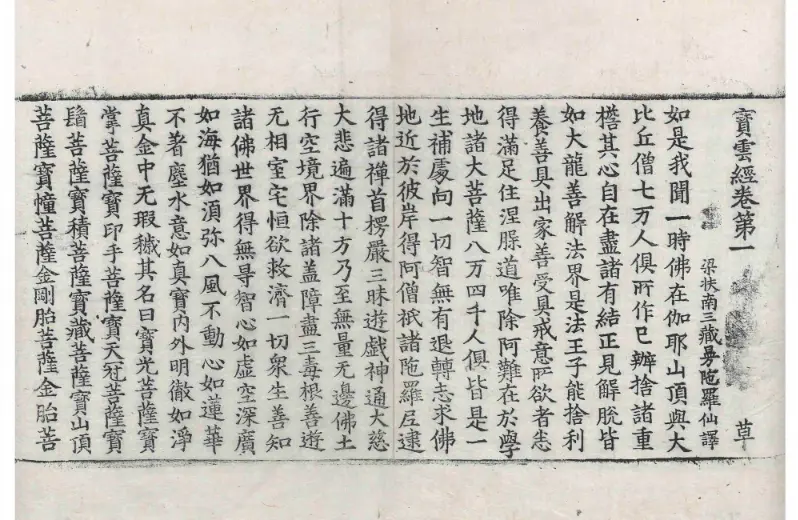 寶雲經卷第一
草
梁扶南三藏曼陁羅仙譯
如是我聞一時佛在伽耶山頂與大
比丘僧七万人俱所作已辦捨諸重
檐其心自在盡諸有結正見解脫皆
如大龍善解法界是法王子能捨利
養善具出家善受具戒意所欲者悉
得滿足住涅槃道唯除阿難在於學
地諸大菩薩八万四千人俱皆是一
生補處向一切智無有退轉志求佛
地近於彼岸得阿僧祇諸陁羅尼逮
得諸禪首楞嚴三昧遊戲神通大慈
大悲遍滿十方乃至無量无邊佛土
行空境界除諸盖障盡三毒根善遊
无相室宅恒欲救濟一切衆生善知
諸佛世界得無㝵智心如虛空深廣
如海猶如須弥八風不動心如蓮華
不著塵水意如真寶內外明徹如淨
真金中无瑕穢其名曰寶光菩薩寶
掌菩薩寶印手菩薩寶天冠菩薩寶
髻菩薩寶積菩薩寶藏菩薩寶山頂
菩薩寶幢菩薩金剛胎菩薩金胎菩